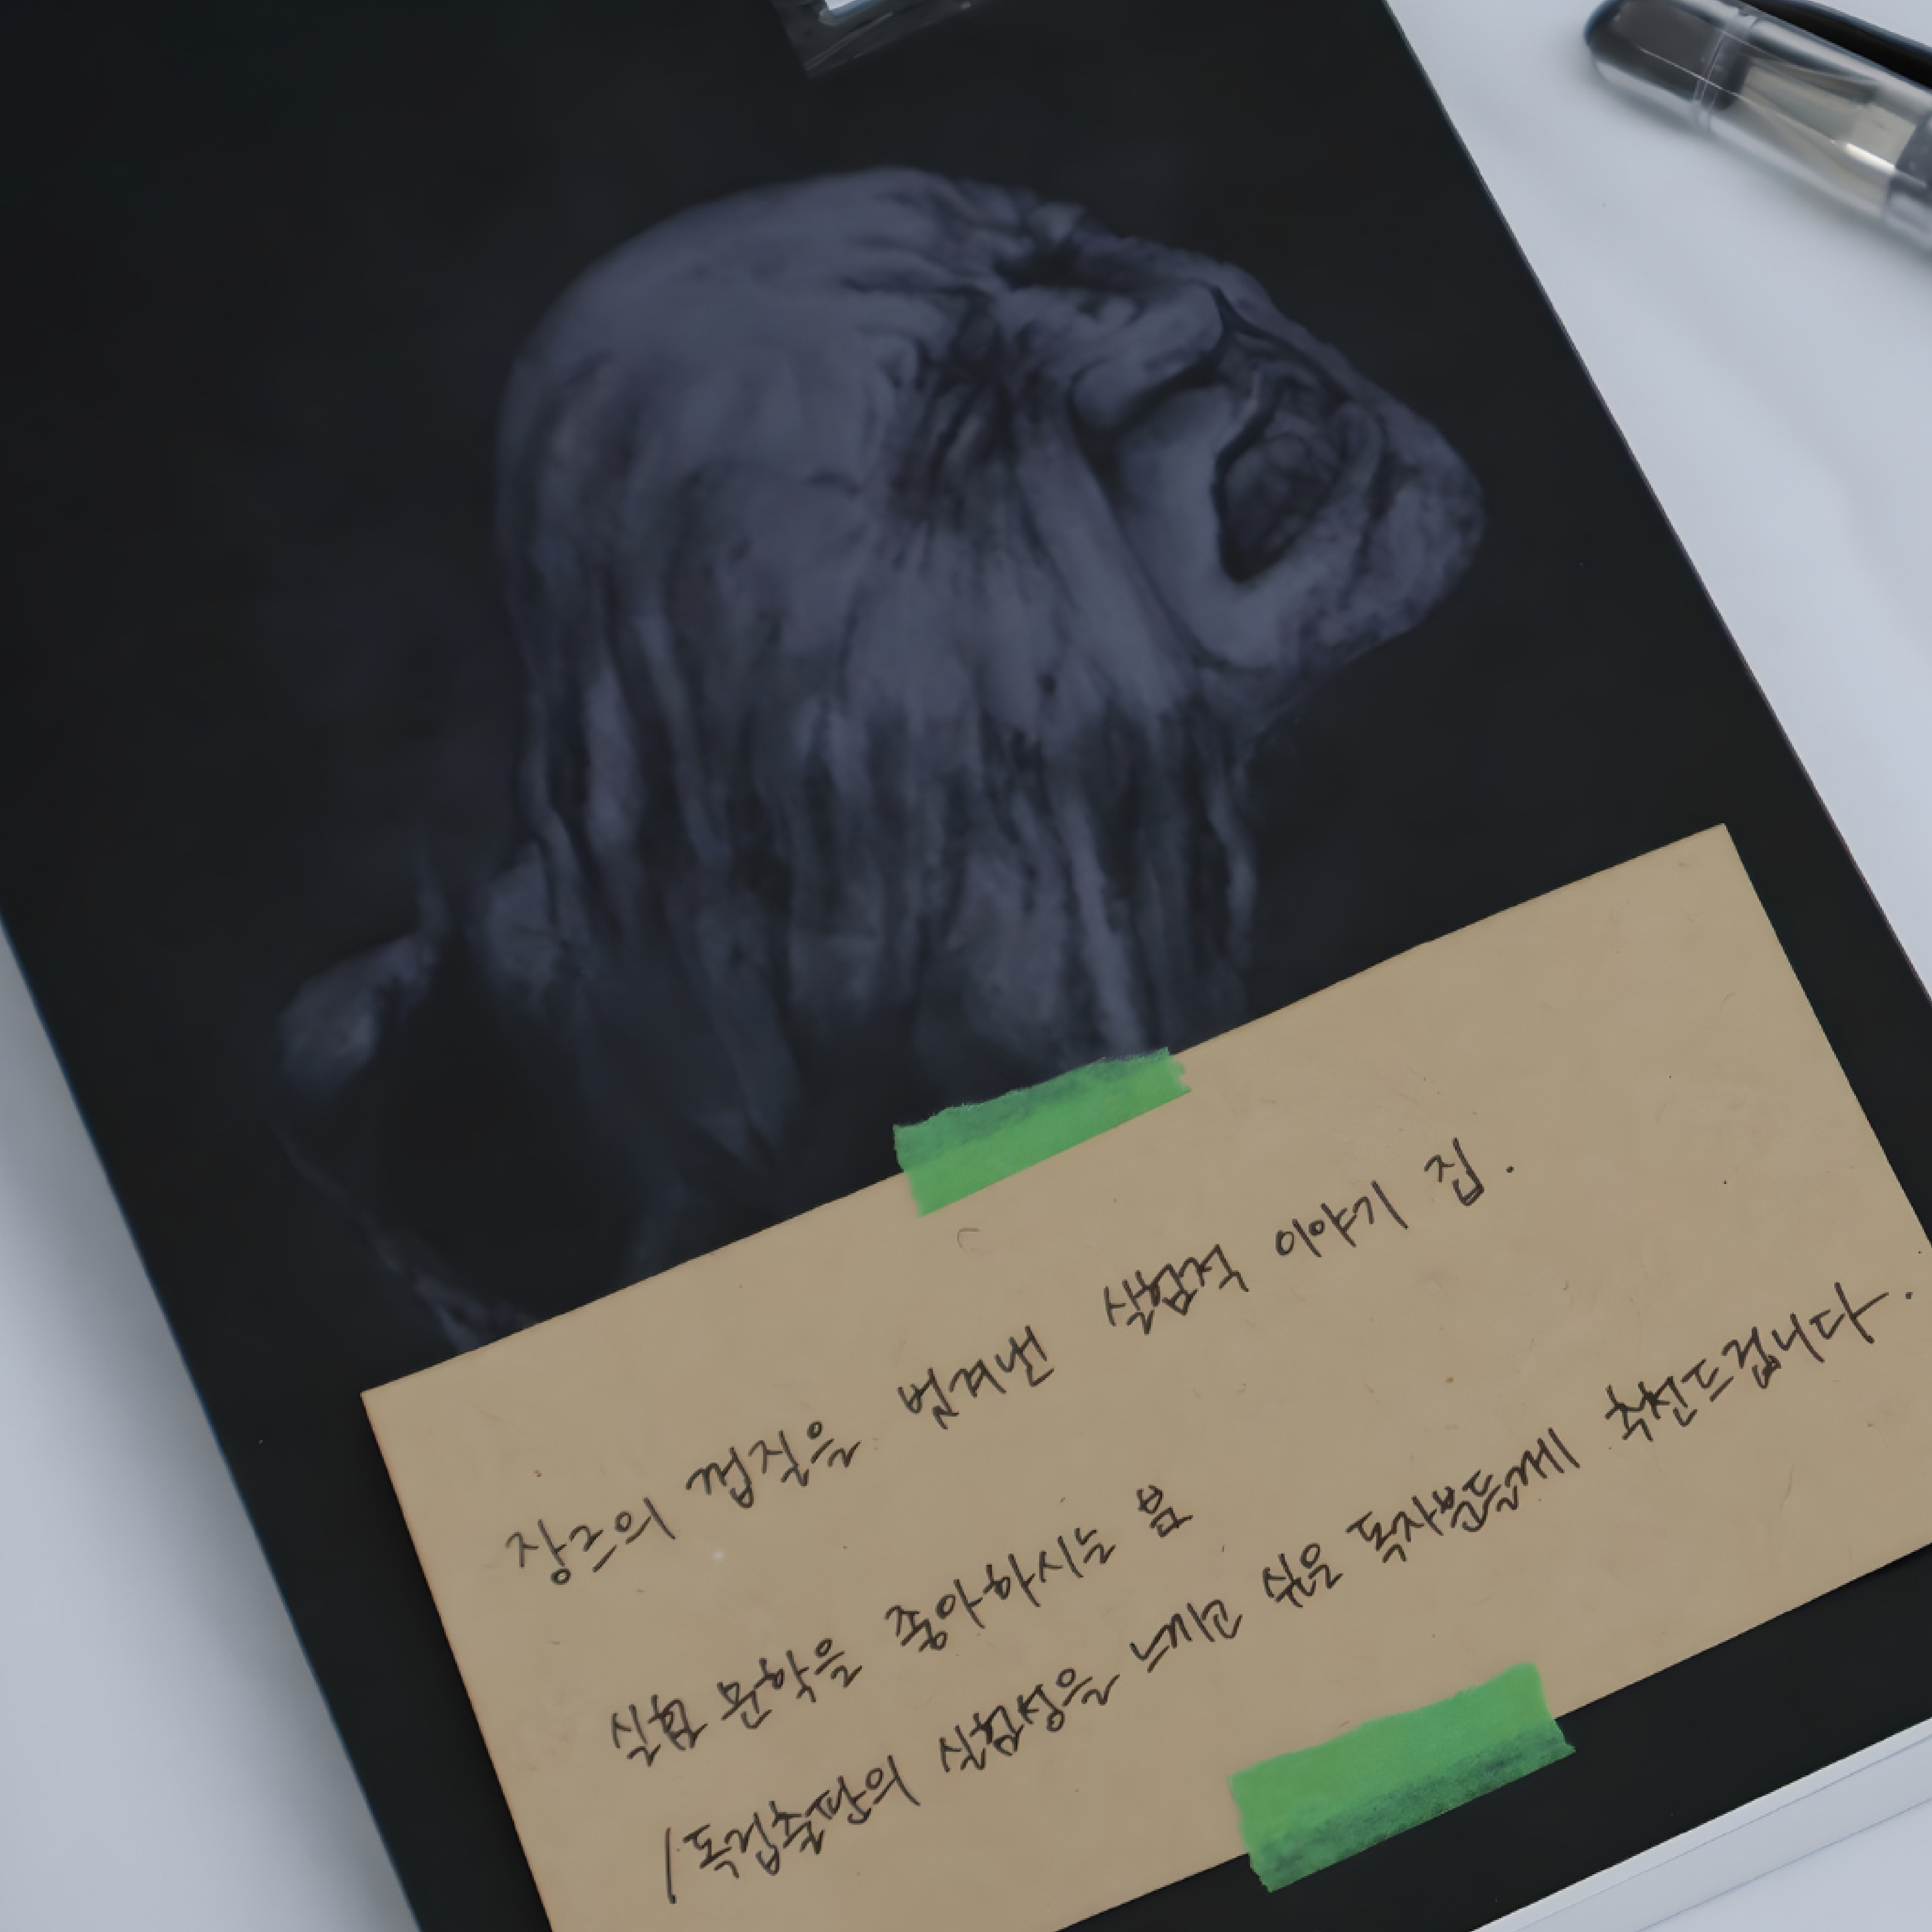 장르의 껍질을 벗겨낸 실험적 이야기 집.
실험 문학을 좋아하시는 분
/독립출판의 실험성을 느끼고 싶은 독자분들께 추천드립니다.